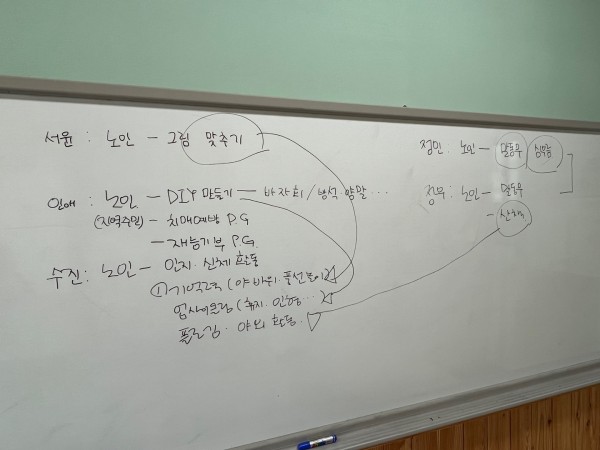 서윤 : 노인 - 그림 맞추기
인애 : 노인 - DIY 만들기 - 바자회 / 방석 양말 ...
(지역주민) - 치매예방 P.G
- 재능기부 P.G.
수진 : 노인 - 인지·신체 활동
① 기억력 (야바위·풍선놀이)
업사이클링 (휴지·인형...)
플로깅· 야외 활동.
정민 : 노인 - 말동무
정무 : 노인 - 말동무
- 산책